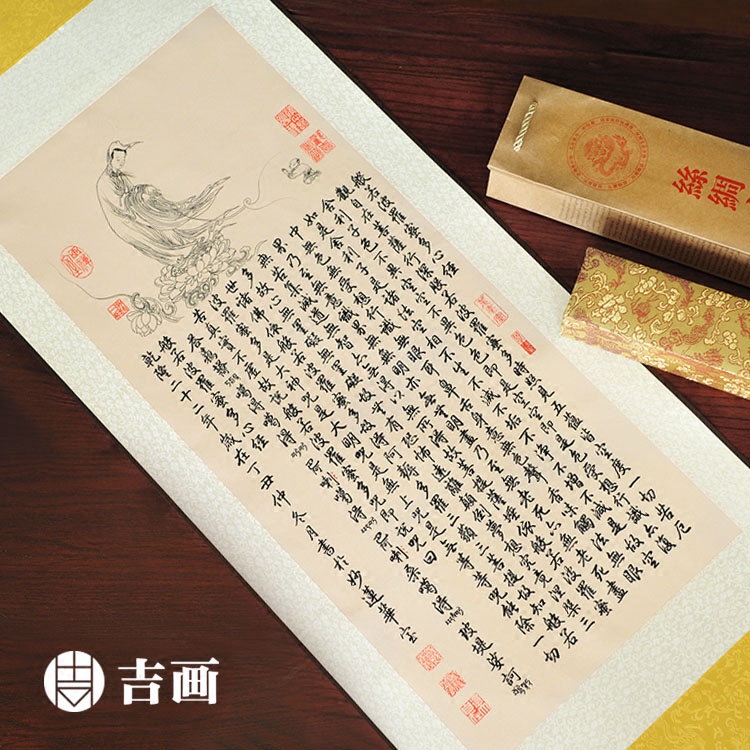 般若波羅蜜多心經
觀自在菩薩行深般若波羅蜜多時照見五蘊皆空度一切苦厄
舍利子色不異空空不異色色即是空空即是色受想行識亦復
如是舍利子是諸法空相不生不滅不垢不淨不增不減是故空
中無色無受想行識無眼耳鼻舌身意無色聲香味觸法無眼
界乃至無意識界無無明亦無無明盡乃至無老死亦無老死盡
無苦集滅道無智亦無得以無所得故菩提薩埵依般若波羅蜜
多故心無罣礙無罣礙故無有恐怖遠離顛倒夢想究竟涅槃三
世諸佛依般若波羅蜜多故得阿耨多羅三藐三菩提故知般若
波羅蜜多是大神咒是大明咒是無上咒是無等等咒能除一切
苦真實不虛故說般若波羅蜜多咒即說咒曰
般若波羅蜜多心經
乾隆二十二年歲在丁丑仲冬月書於妙蓮華室
絲綢
吉画